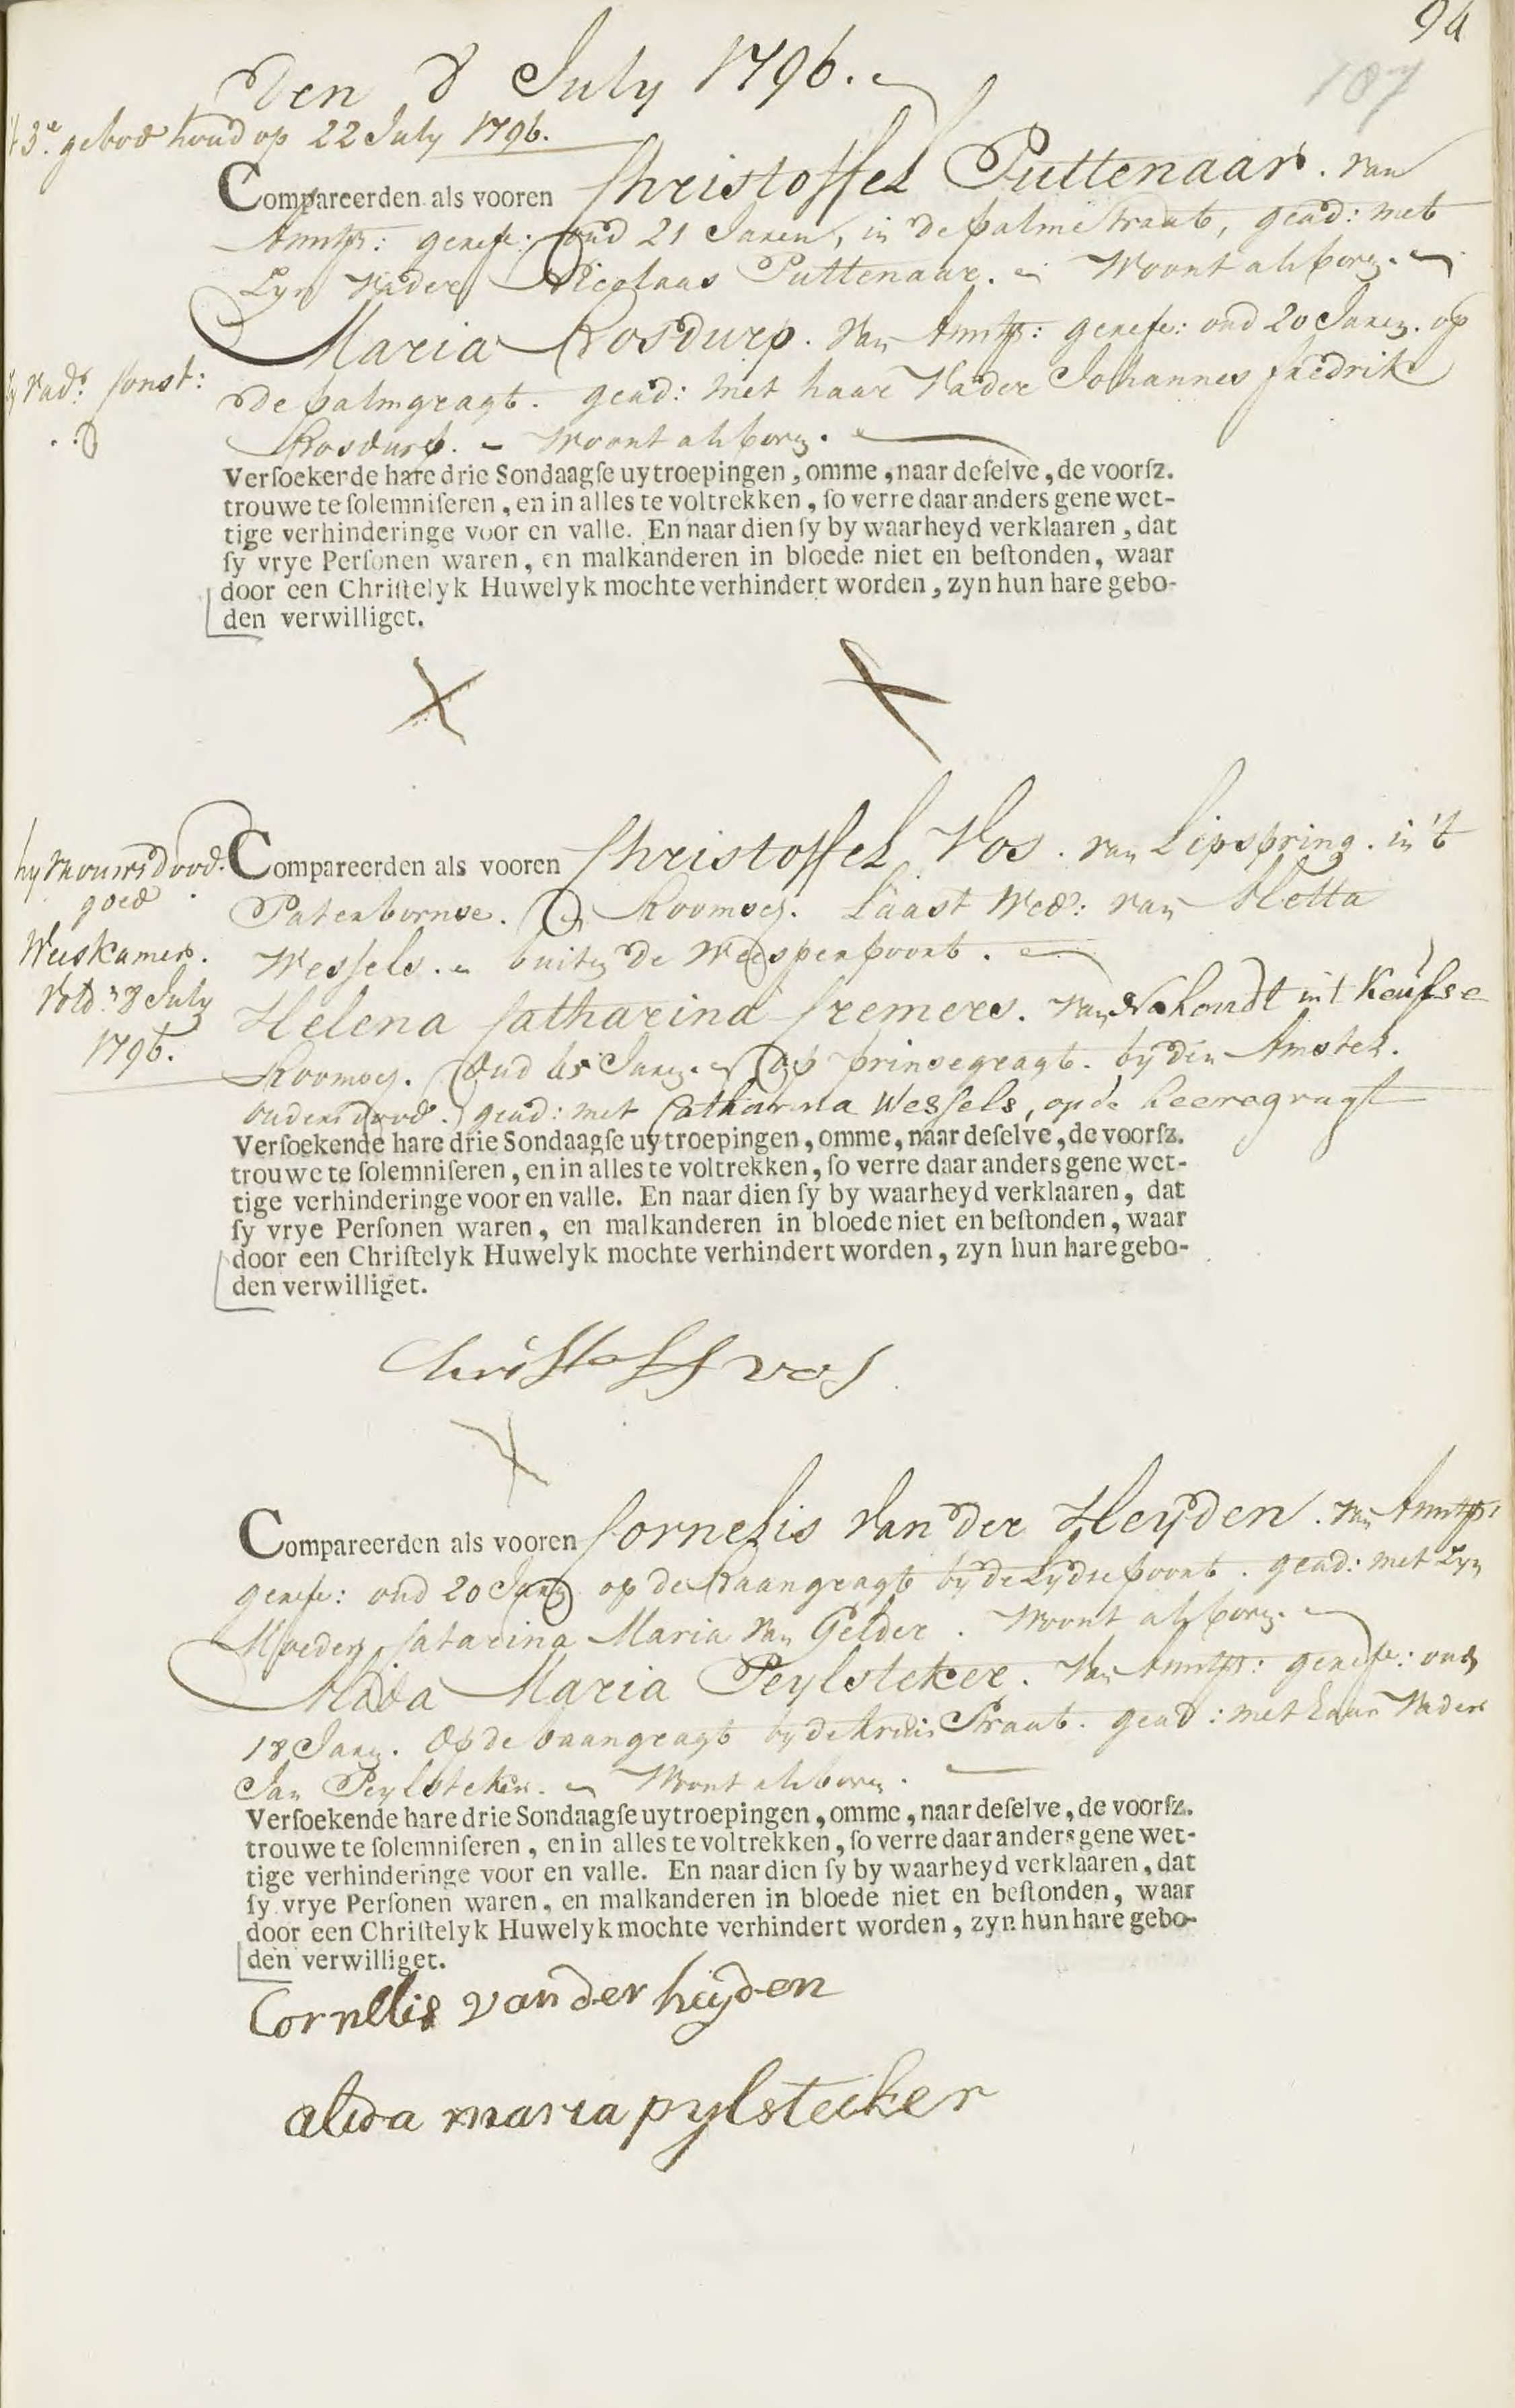 94
107
Den 8 July 1796.
't 3e. gebod houd op 22 July 1796.
Compareerden als vooren Christoffel Puttenaar. van
Amstr: geref: oud 21 Jaren, in de palmstraat, gead: met
Zyn Vader Nicolaas Puttenaar. Woont als boven.
Maria Rosdurp. van Amst: geref: oud 20 Jaren. op
de palmgragt. gead: met haar Vader Johannes fredrik
Rosdurp. - Woont als boven.
vad: Const:
Verſoekende hare drie Sondaagſe uytroepingen, omme, naar deſelve, de voorſz.
trouwe te ſolemniſeren, en in alles te voltrekken, ſo verre daar anders gene wet-
tige verhinderinge voor en valle. En naar dien ſy by waarheyd verklaaren, dat
ſy vrye Perſonen waren, en malkanderen in bloede niet en beſtonden, waar
door een Chriſtelyk Huwelyk mochte verhindert worden, zyn hun hare gebo-
den verwilliget.
X X
hy vrouws dood.
goed
Weeskamer.
vold: 8 July
1796.
Compareerden als vooren Christoffel Vos. van Lipspring. in 't
Paterbornse. Rooms. Laast Wed: van Metta
Wessels. buiten de Weesperpoort.
Helena Catharina Cremers. van in 't Keulse
Rooms. Oud 45 Jaren. op prinsegragt. by den Amstel.
ouders dood. gead: met Catharina Wessels, op de heeregragt
Verſoekende hare drie Sondaagſe uytroepingen, omme, naar deſelve, de voorſz.
trouwe te ſolemniſeren, en in alles te voltrekken, ſo verre daar anders gene wet-
tige verhinderinge voor en valle. En naar dien ſy by waarheyd verklaaren, dat
ſy vrye Perſonen waren, en malkanderen in bloede niet en beſtonden, waar
door een Chriſtelyk Huwelyk mochte verhindert worden, zyn hun hare gebo-
den verwilliget.
Christoff vos
X
Compareerden als vooren Cornelis van der Heyden. van Amst:
geref: oud 20 Jaren op de Baangragt by de Lydsepoort. gead: met Zyn
Moeder Catarina Maria van Gelder. Woont als boven.
Alida Maria Peylsteker. van Amst: geref: oud
18 Jaren. Op de baangragt by de kruis Straat. gead: met haar Vader
Jan Peylsteker. Woont als boven.
Verſoekende hare drie Sondaagſe uytroepingen, omme, naar deſelve, de voorſz.
trouwe te ſolemniſeren, en in alles te voltrekken, ſo verre daar anders gene wet-
tige verhinderinge voor en valle. En naar dien ſy by waarheyd verklaaren, dat
ſy vrye Perſonen waren, en malkanderen in bloede niet en beſtonden, waar
door een Chriſtelyk Huwelyk mochte verhindert worden, zyn hun hare gebo-
den verwilliget.
Cornelis van der heyden
alida maria pylstecker